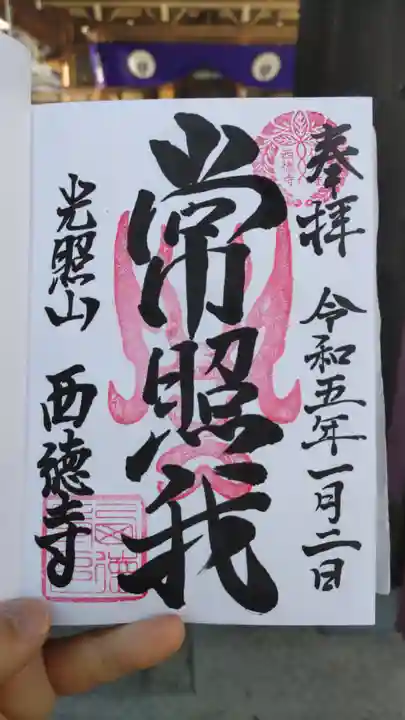 奉拝
令和五年一月二日
西徳寺
常照我
光照山
西徳寺